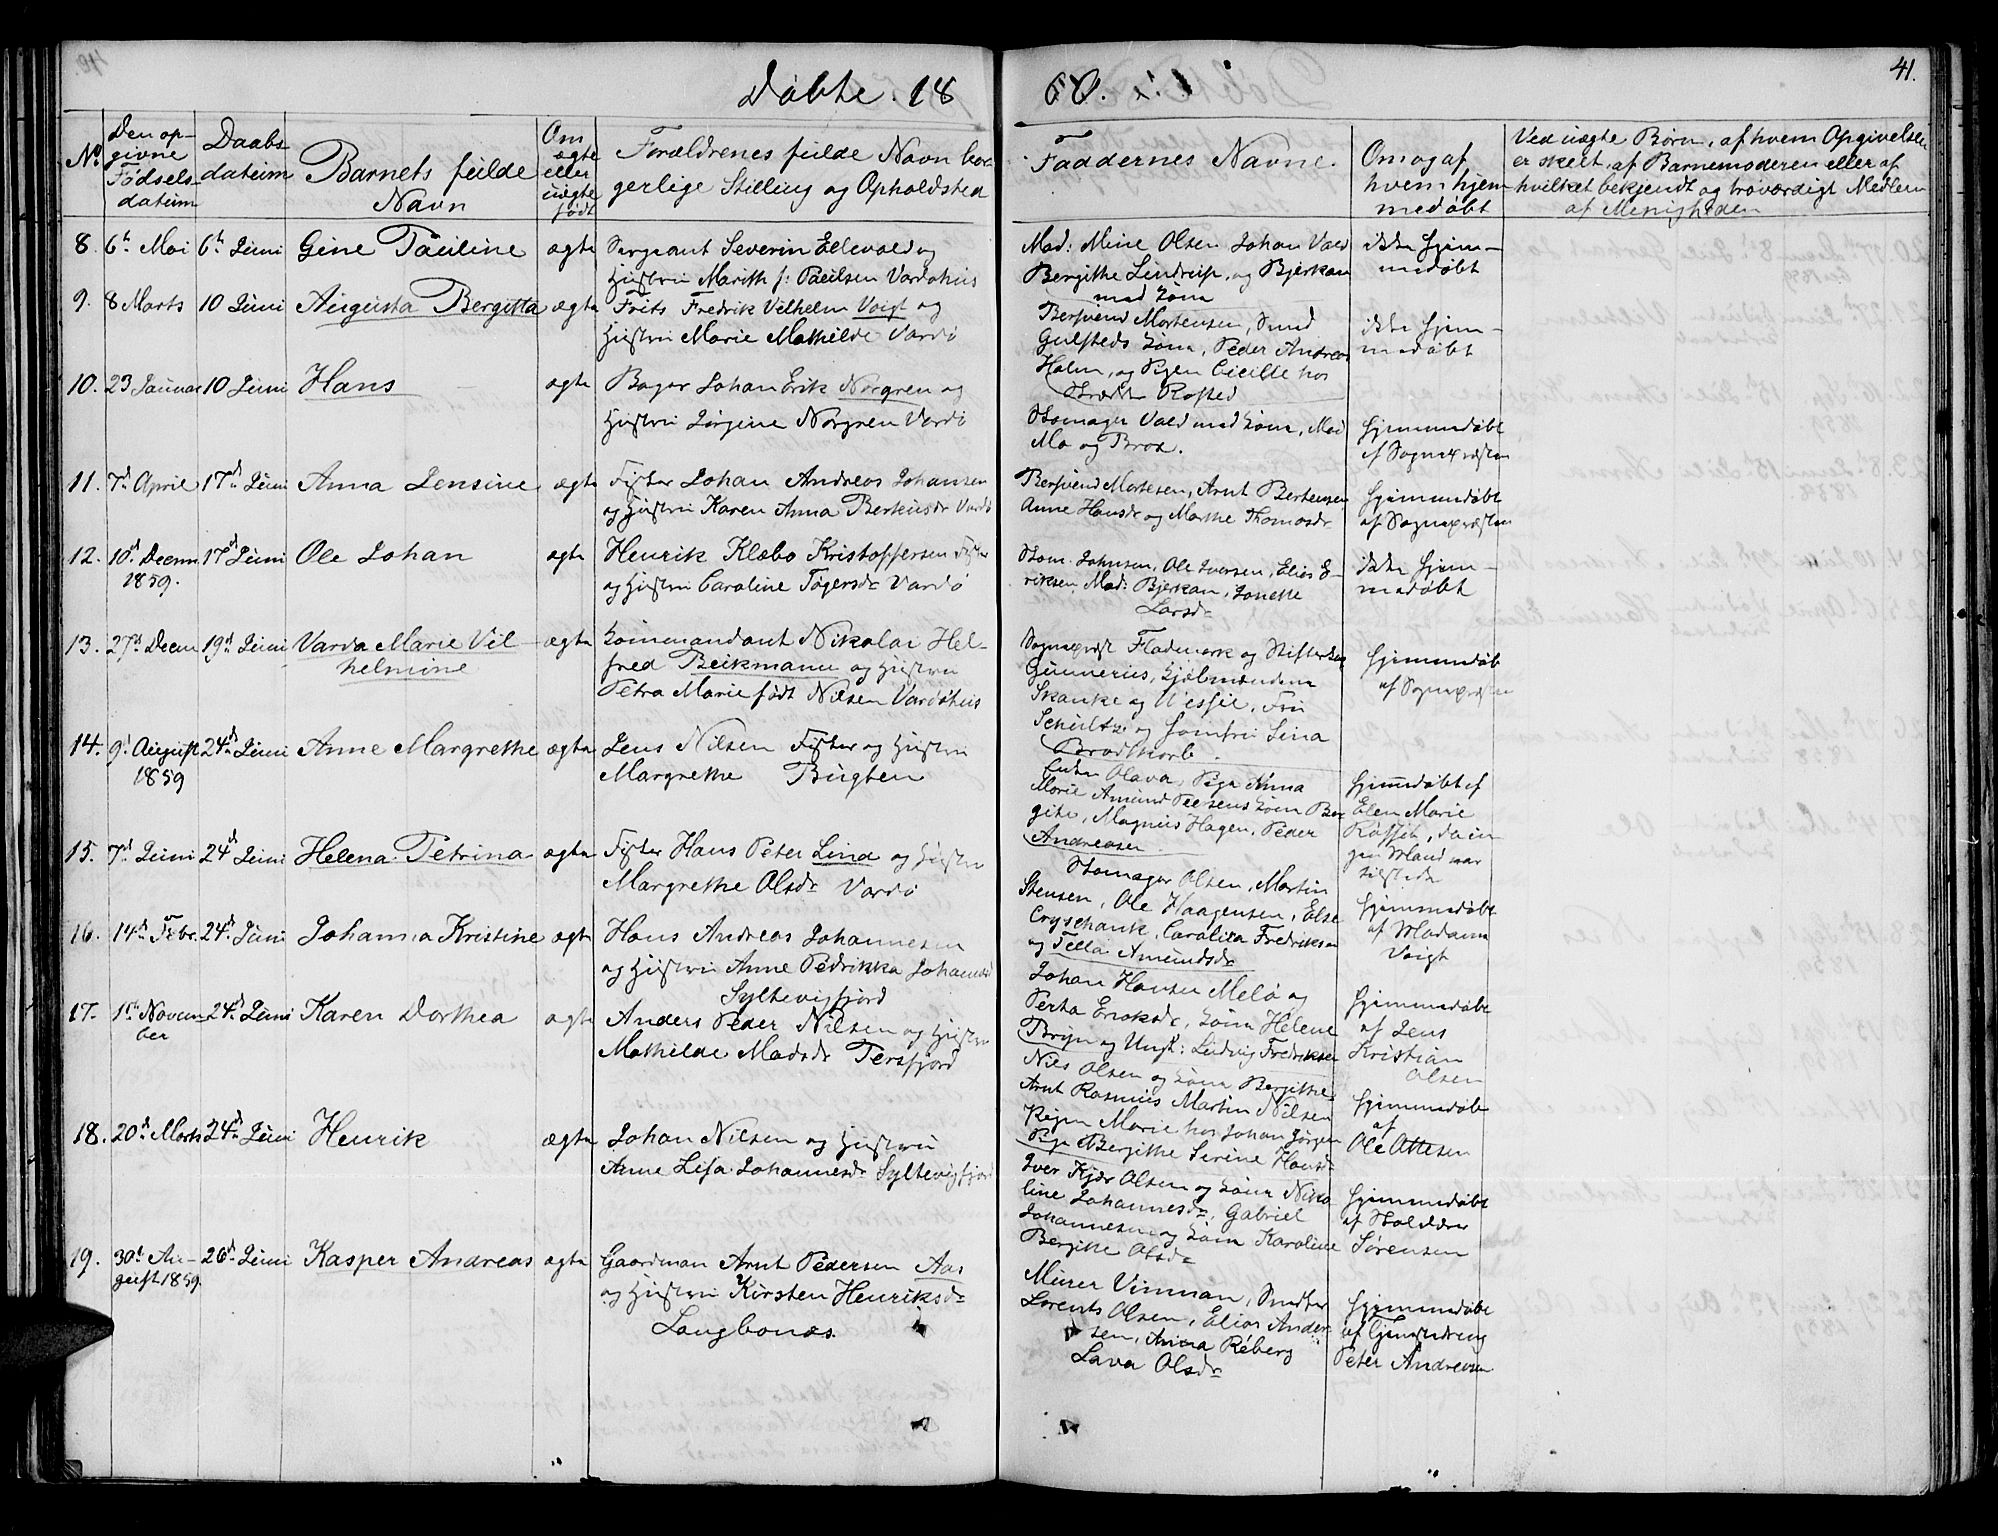 Døbte. 18
60.
41.
No
Den op-
givne
Fødsels-
datum
Daabs
datum
Barnets fulde
Navn
Om
ægte
eller
uægte
født
Forældrenes fulde Navn bor
gerlige Stilling og Opholdsted
Faddernes Navne.
Om og af
hvem hjem
medøbt
Ved uægte Børn, af hvem Opgivelsen
er skeet, af Barnemoderen eller af
hvilket bekjendt og troværdigt Medlem
af Menigheden
8. 6te Mai 6te Juni Gine Pauline ægte Sergeant Severin Ellevold og
Hustru Marith f: Paulsen Vardøhus
Mad: Mine Olsen Johan Vald
Bergithe Lindrup, og Bjerkan
med Kone
ikke hjem-
medøbt
9. 8 Marts 10 Juni Augusta Bergitta ægte Frits Fredrik Vilhelm Voigt og
Hustru Marie Mathilde Vardø
Berfvend Mortensen, Smed
Gulsteds Kone, Peder Andreas
Holm, og Pigen Cicilie hos
Rofsted
ikke hjem-
medøbt
10. 23 Januar 10 Juni Hans ægte Bager Johan Erik Norgren og
Hustru Jørgine Norgren Vardø
Skomager Vald med Kone, Mad
Mo og Brox.
hjemmedøbt
af Sognepræsten
11. 7de April 17de Juni Anna Jensine ægte Fisker Johan Andreas Johansen
og Hustru Karen Anna Berkusdr Vardø
Berfvend Mortesen, Arnt Bertensen
Anne Hansdr og Marthe Thomasdr
hjemmedøbt
af Sognepræsten
12. 10de Decem 17de Juni Ole Johan ægte Henrik Klæbo Kristoffersen Fisker
1859.
og Hustru Caroline Tøgersdr Vardø
Skom. Johnsen, Ole Iversen, Elias E-
riksen, Mad. Bjerkan, Jonette
Larsdr
ikke hjem-
medøbt
13. 27de Decem 19de Juni Varda Marie Vil- ægte Kommandant Nikolai Hel-
helmine
fred Beikmann og Hustru
Petra Marie født Nilsen Vardøhus
Sognepræst Fladmark og
Gunnerius, Kjøbmændene
Skanke og Wessel, Fru
Schultz og Jomfru Lina
Brodtkorb.
hjemmedøbt
af Sognepræsten
14. 9de August 24de Juni Anne Margrethe ægte Jens Nilsen Fisker og Hustru
1859
Margrethe Bugten
Enke Olava, Pige Anna
Marie Amund Pedersens Kone Ber
gite, Magnus Hagen, Peder
Andreasen.
hjemmedøbt af
Elen Marie
da in-
gen Mand var
tilstede
15. 7de Juni 24de Juni Helena Petrina ægte Fisker Hans Peter Lind og Hustru
Margrethe Olsdr Vardø
Skomager Olsen, Martin
Stensen, Ole Haagensen, Else
Caroline Fredriksen
og Amundsdr
16. 14de Febr. 24de Juni Johanna Kristine ægte Hans Andreas Johannesen
og Hustru Anne Pedrikka Johannesd
Syltevigfjord
Johan Hansen Melø og
Petra Eriksdr, Kone Helene
Brijn og Ungk: Ludvig Fredriksen
hjemmedøbt
af Madame
Voigt
17. 1ste Novem- 24de Juni Karen Dorthea ægte Anders Peder Nilsen og Hustru
ber
Mathilde Madsdr Persfjord
Nils Olsen og Kone Bergithe
Arnt Rasmus Martin Nilsen
Pigen Marie hos Johan Jørgen
Pige Bergithe Serine Hansdr
hjemmedøbt
af Jens
Kristian
Olsen
18. 20de Marts 24de Juni Henrik ægte Johan Nilsen og Hustru
Anne Lisa Johannesdr Syltevigfjord
Iver Kjær Olsen og Kone Niko
line Johannesdr, Gabriel
Johannesen og Kone Karoline
Bergitte Olsdr
hjemmedøbt
af
Ole Ottesen
19. 30de Au- 26de Juni Kasper Andreas ægte Gaardman Arnt Pedersen Aas
gust 1859.
og Hustru Kirsten Henriksdr
Langbonæs.
Miner Vinman, Snedker
Lorents Olsen, Elias Ander
sen, Anna Reberg
Lava Olsdr
hjemmedøbt
af Skolelærer
Sørensen
hjemmedøbt
af
Peter Andreasen